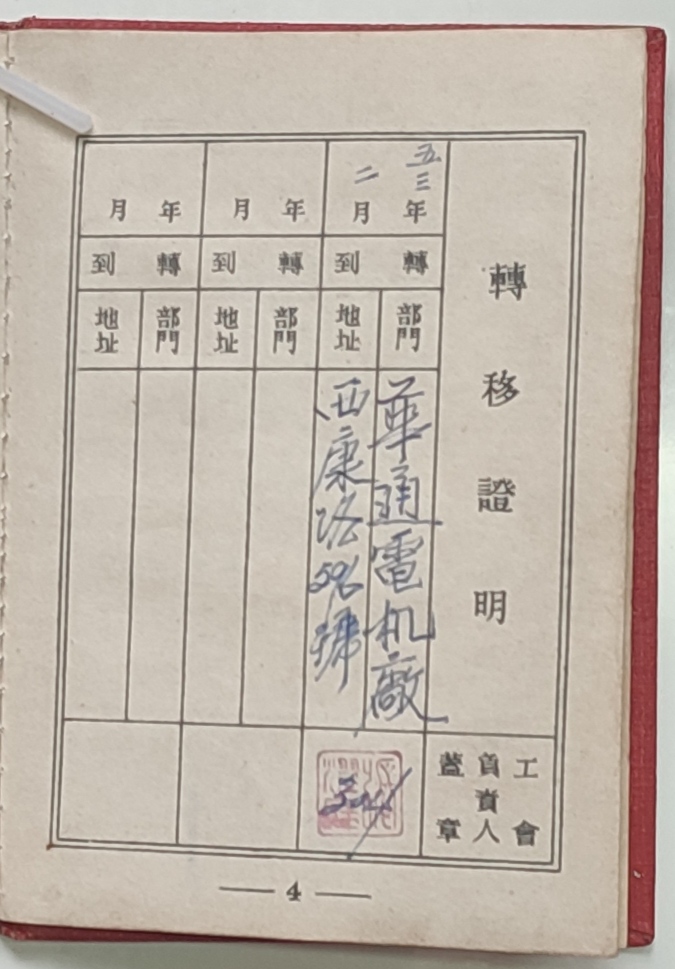 轉移證明
工會
負責人
蓋章
五三年二月
轉到
部門
華通電机廠
地址
西康路
號
年月
轉到
部門
地址
年月
轉到
部門
地址
4